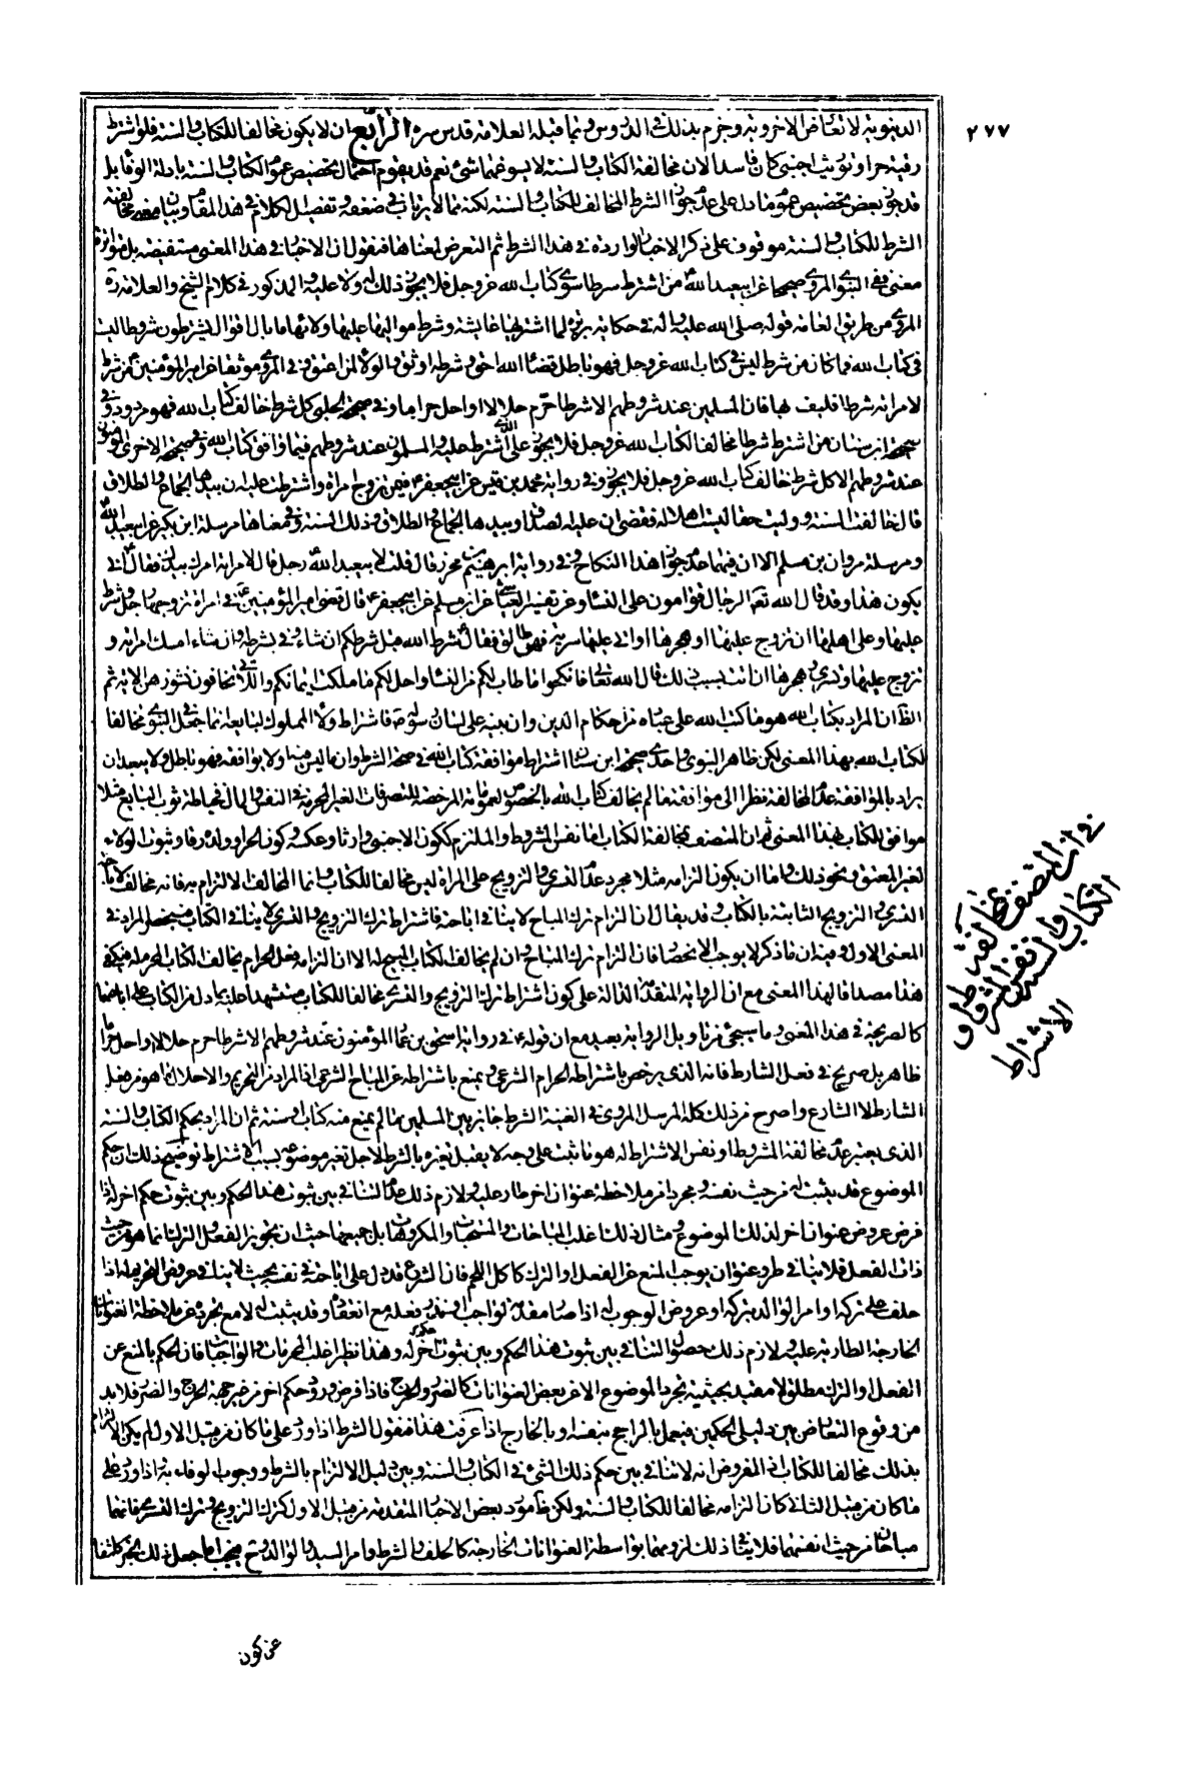 ٢٧٧
الدنيوية لا تعارض الاخروية وجزم بذلك في الدروس وفيما قبله العلامة قدس سره الرابع ان لا يكون مخالفا للكتاب والسنة فلو اشترط
رقية حر او توريث اجنبي كان فاسدا لان مخالفة الكتاب والسنة لا يسوغها شئ نعم قد يقوم احتمال تخصيص عموم الكتاب والسنة بادلة الوفا بل
قد جوز بعض تخصيص عموم ما دل على عدم جواز الشرط المخالف للكتاب والسنة لكنه مما لا يرتاب في ضعفه وتفصيل الكلام في هذا المقام وبيان معنى مخالفة
الشرط للكتاب والسنة موقوف على ذكر الاخبار الواردة في هذا الشرط ثم التعرض لمعناها فنقول ان الاخبار في هذا المعنى مستفيضة بل متواترة
معنى ففي النبوي المروي صحيحا عن ابيعبد الله ع من اشترط شرطا سوى كتاب الله عز وجل فلا يجوز ذلك له ولا عليه والمذكور في كلام الشيخ والعلامة ره
المروي من طريق العامة قوله صلى الله عليه واله في حكاية بريرة لما اشترتها عايشة وشرط مواليها عليها ولائها ما بال اقوام يشترطون شروطا ليست
في كتاب الله فما كان من شرط ليس في كتاب الله عز وجل فهو باطل قضاء الله احق وشرطه اوثق والولاء لمن اعتق وفي المروي موثقا عن امير المؤمنين ع من شرط
لامراته شرطا فليف لها فان المسلمين عند شروطهم الا شرطا حرم حلالا او احل حراما وفي صحيحة الحلبي كل شرط خالف كتاب الله فهو مردود وفي
صحيحة ابن سنان من اشترط شرطا مخالفا لكتاب الله عز وجل فلا يجوز على الذي اشترط عليه والمسلمون عند شروطهم فيما وافق كتاب الله وفي صحيحته الاخرى المؤمنون
عند شروطهم الا كل شرط خالف كتاب الله عز وجل فلا يجوز وفي رواية محمد بن قيس عن ابيجعفر ع فيمن تزوج امراة واشترطت عليه ان بيدها الجماع والطلاق
قال خالفت السنة ووليت حقا ليست اهلا له فقضى ان عليه الصداق وبيده الجماع والطلاق وذلك السنة وفي معناها مرسلة ابن بكير عن ابيعبد الله
ومرسلة مروان بن مسلم الا ان فيهما عدم جواز هذا النكاح وفي رواية ابراهيم بن محرز قال قلت لابيعبد الله ع رجل قال لامراته امرك بيدك فقال ع انى
يكون هذا وقد قال الله تعم الرجال قوامون على النساء وعن تفسير العياشي عن ابن مسلم عن ابيجعفر ع قال قضى امير المؤمنين ع في امراة تزوجها رجل وشرط
عليها وعلى اهلها ان تزوج عليها او هجرها او اتى عليها سرية فهي طالق فقال ع شرط الله قبل شرطكم ان شاء وفى بشرطه وان شاء امسك امراته و
تزوج عليها وتسرى وهجرها ان اتت بسبب ذلك قال الله تعالى فانكحوا ما طاب لكم من النساء واحل لكم ما ملكت ايمانكم واللاتي تخافون نشوزهن الاية ثم
الظ ان المراد بكتاب الله هو ما كتب الله على عباده من احكام الدين وان بينه على لسان رسوله ص فاشتراط ولاء المملوك لبايعه انما جعل في النبوي مخالفا
لكتاب الله بهذا المعنى لكن ظاهر النبوي واحدى صحيحتي ابن سنان اشتراط موافقة كتاب الله في صحة الشرط وان ما ليس فيه او لا يوافقه فهو باطل ولا يبعد ان
يراد بالموافقة عدم المخالفة نظرا الى موافقة ما لم يخالف كتاب الله بالخصوص لعموماته المرخصة للتصرفات الغير المحرمة في النفس والمال فخياطة ثوب البايع مثلا
موافق للكتاب بهذا المعنى ثم ان المتصف بمخالفة الكتاب اما نفس المشروط والملتزم ككون الاجنبي وارثا وعكسه وكون الحر او ولده رقا وثبوت الولاء
لغير المعتق ونحو ذلك واما ان يكون التزامه مثلا مجرد عدم التسري والتزويج على المراة ليس مخالفا للكتاب وانما المخالف الالتزام به فانه مخالف لاباحة
التسري والتزويج الثابتة بالكتاب وقد يقال ان التزام ترك المباح لا ينافي اباحته فاشتراط ترك التزويج والتسري لا ينافي الكتاب فينحصر المراد في
المعنى الاول وفيه ان ما ذكر لا يوجب الانحصار فان التزام ترك المباح وان لم يخالف الكتاب المبيح له الا ان التزام فعل الحرام يخالف الكتاب المحرم له فيكفي
هذا مصداقا لهذا المعنى مع ان الرواية المتقدمة الدالة على كون اشتراط ترك التزويج والتسري مخالفا للكتاب مستشهدا عليه بما دل من الكتاب على اباحتها
كالصريحة في هذا المعنى وما سيجئ من تاويل الرواية بعيد مع ان قوله ع في رواية اسحق بن عمار المؤمنون عند شروطهم الا شرطا حرم حلالا او احل حراما
ظاهر بل صريح في فعل الشارط فانه الذي يرخص باشتراطه الحرام الشرعي ويمنع باشتراطه عن المباح الشرعي اذ المراد من التحريم والاحلال ما هو من فعل
الشارط لا الشارع واصرح من ذلك كله المرسل المروي في الغنية الشرط جايز بين المسلمين ما لم يمنع منه كتاب او سنة ثم ان المراد بحكم الكتاب والسنة
الذي يعتبر عدم مخالفة المشروط او نفس الاشتراط له هو ما ثبت على وجه لا يقبل تغيره بالشرط لاجل تغير موضوعه بسبب الاشتراط توضيح ذلك ان حكم
الموضوع قد يثبت له من حيث نفسه ومجردا عن ملاحظة عنوان اخر طار عليه ولازم ذلك عدم التنافي بين ثبوت هذا الحكم وبين ثبوت حكم اخر له اذا
فرض عروض عنوان اخر لذلك الموضوع ومثال ذلك اغلب المباحات والمستحبات والمكروهات بل جميعها حيث ان تجويز الفعل والترك انما هو من حيث
ذات الفعل فلا ينافي طرو عنوان يوجب المنع عن الفعل او الترك كاكل اللحم فان الشرع قد دل على اباحته في نفسه بحيث لا ينافي عروض التحريم له اذا
حلف على تركه او امر الوالد بتركه او عروض الوجوب له اذا صار مقدمة لواجب او نذر فعله مع انعقاده وقد يثبت له لا مع تجرده عن ملاحظة العنوانات
الخارجة الطارية عليه ولازم ذلك حصول التنافي بين ثبوت هذا الحكم وبين ثبوت حكم اخر له وهذا نظير اغلب المحرمات والواجبات فان الحكم بالمنع عن
الفعل او الترك مطلق لا مقيد بحيثية تجرد الموضوع الا عن بعض العنوانات كالضرر والحرج فاذا فرض ورود حكم اخر من غير جهة الحرج والضرر فلا بد
من وقوع التعارض بين دليلي الحكمين فيعمل بالراجح بنفسه او بالخارج اذا عرفت هذا فنقول الشرط اذا ورد على ما كان من قبيل الاول لم يكن الالتزام
بذلك مخالفا للكتاب اذ المفروض انه لا تنافي بين حكم ذلك الشئ في الكتاب والسنة وبين دليل الالتزام بالشرط ووجوب الوفاء به واذا ورد على
ما كان من قبيل الثاني كان التزامه مخالفا للكتاب والسنة ولكن ظ مورد بعض الاخبار المتقدمة من قبيل الاول كترك التزويج وترك التسري فانهما
مباحان من حيث انفسهما فلا ينافي ذلك لزومهما بواسطة العنوانات الخارجة كالحلف والشرط وامر السيد والوالد وح فيجب اما جعل ذلك الخبر كاشفا
في ان المتصف بمخالفة
الكتاب والسنة نفس المشروط او
الاشتراط
عن كون